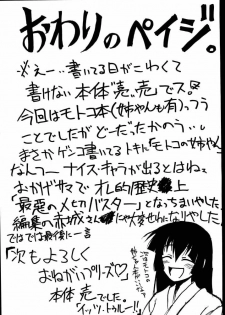 おわりのペイジ。
※えー…書いてる日がこわくて
書けない本体売。売でスっ。
今回はモトコ本(姉ちゃんも有)っつう
ことでしたがどーだったかのぅ…。
まさかゲンコ書いてるトキに「モトコの姉ちゃん」
なんつーナイス・キャラが出るとはね。
おかげサマでオレ的歴史上
「最悪のメセカバスター」となっちまいやした。
編集の赤城さんにや大変世話になりやした。
ではでは最後に一言
「次もよろしく
おねがいプリーズ♡」
本体 売でした。
(イッツ・トゥルー!!)